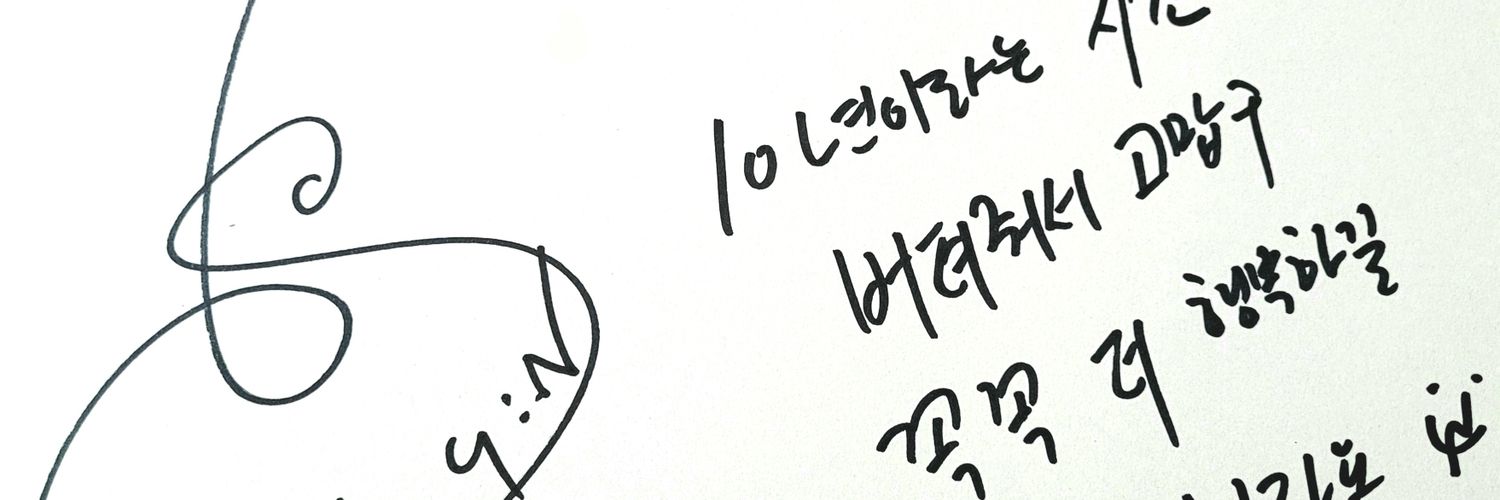 10년이라는 시간
버텨줘서 고맙구
꼭꼭 더 행복하길
y:N